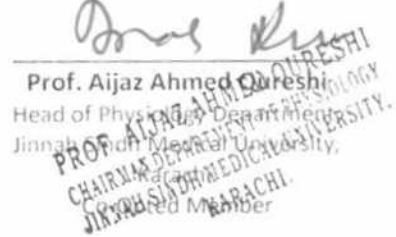 Prof. Aijaz Ahmed Qureshi
Head of Physiology Department
Jinnah Sindh Medical University,
Karachi
Member
PROF. AIJAZ AHMED QURESHI
CHAIRMAN DEPARTMENT OF PHYSIOLOGY
JINNAH SINDH MEDICAL UNIVERSITY,
KARACHI.